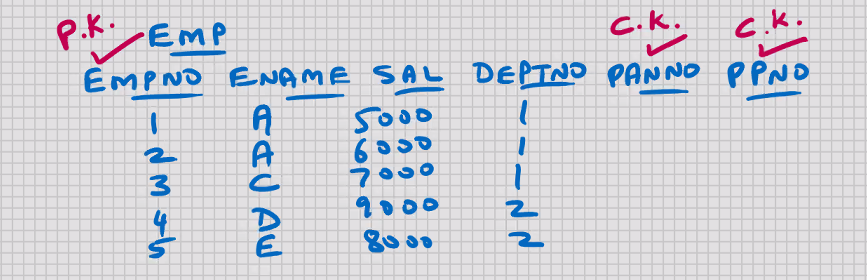 P.K. C.K. C.K.
EMP
EMPNO ENAME SAL DEPTNO PANNO PPNO
1 A 5000 1
2 A 6000 1
3 C 7000 1
4 D 9000 2
5 E 8000 2